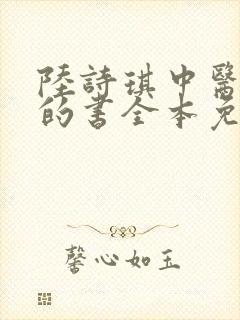 陸詩琪中醫
的書全本免
馨心如玉